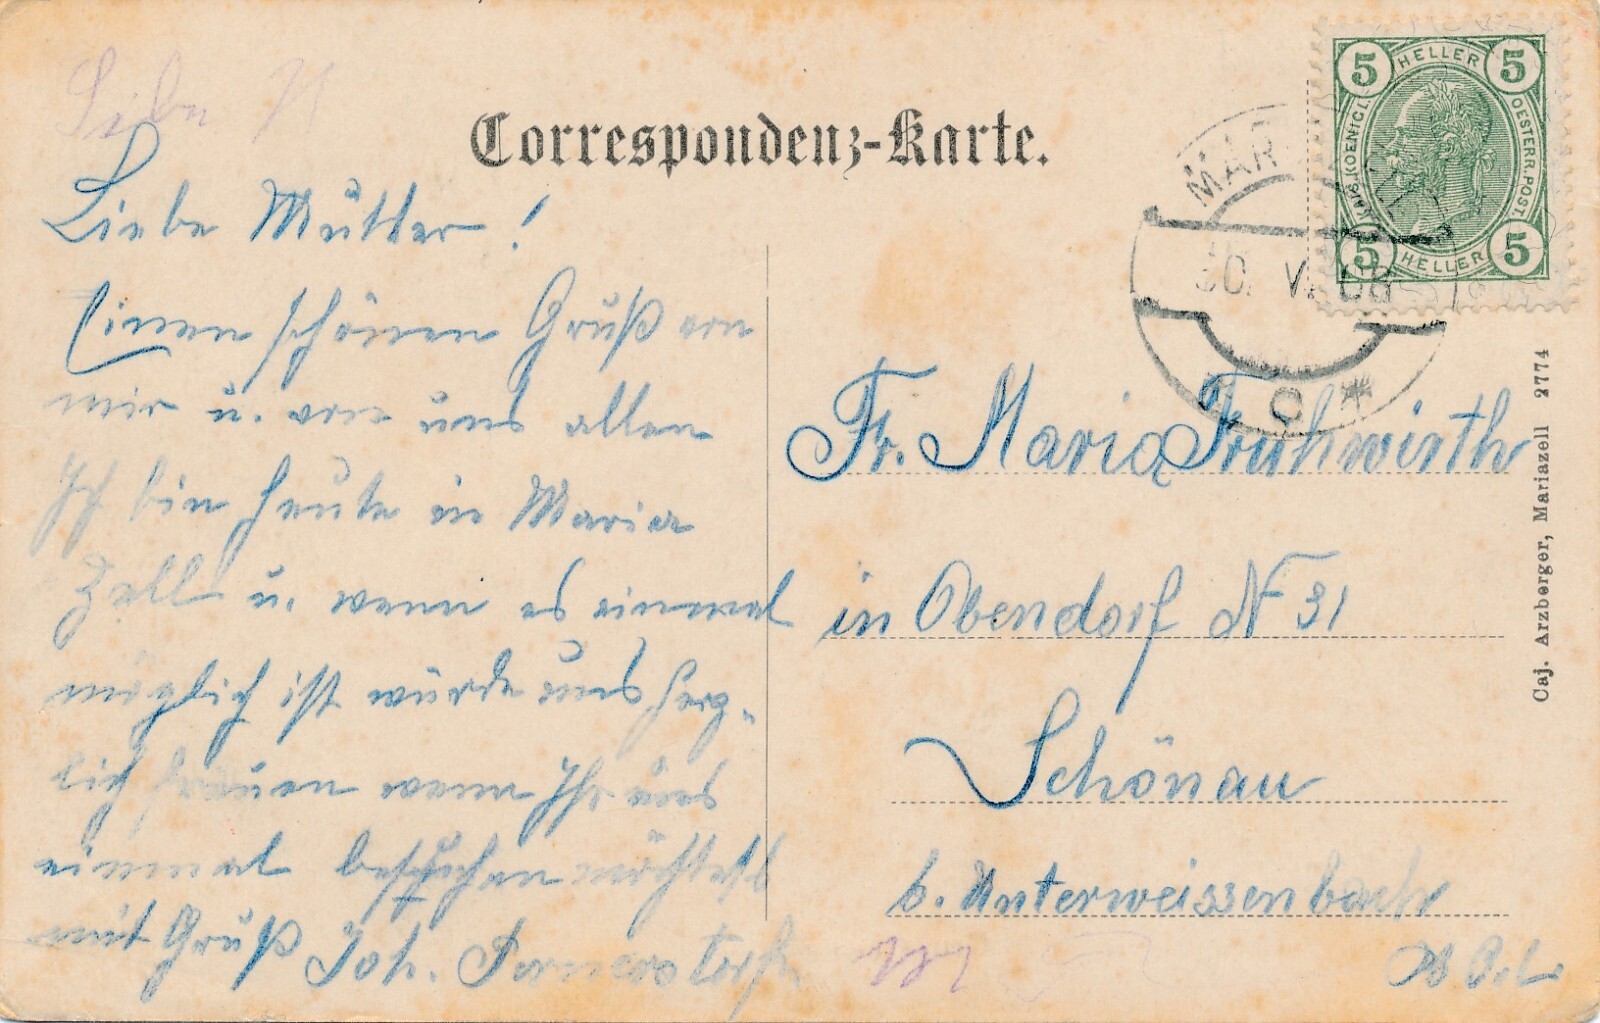 Correspondenz-Karte.
5 HELLER 5
KAIS. KOENIGL. OESTERR. POST.
5 HELLER 5
Liebe
Liebe Mutter!
Einen schönen Gruß von
mir u. von uns allen
Ich bin heute in Maria
Zell u. wenn es einmal
möglich ist würde uns herz-
lich freuen wenn Ihr uns
einmal besuchen möchtest
mit Gruß Joh.
MAR
30. V. 08
Fr. Maria Frühwirth
in Obendorf N 31
Schönau
b. Unterweissenbach
Caj. Arzberger, Mariazell 2774